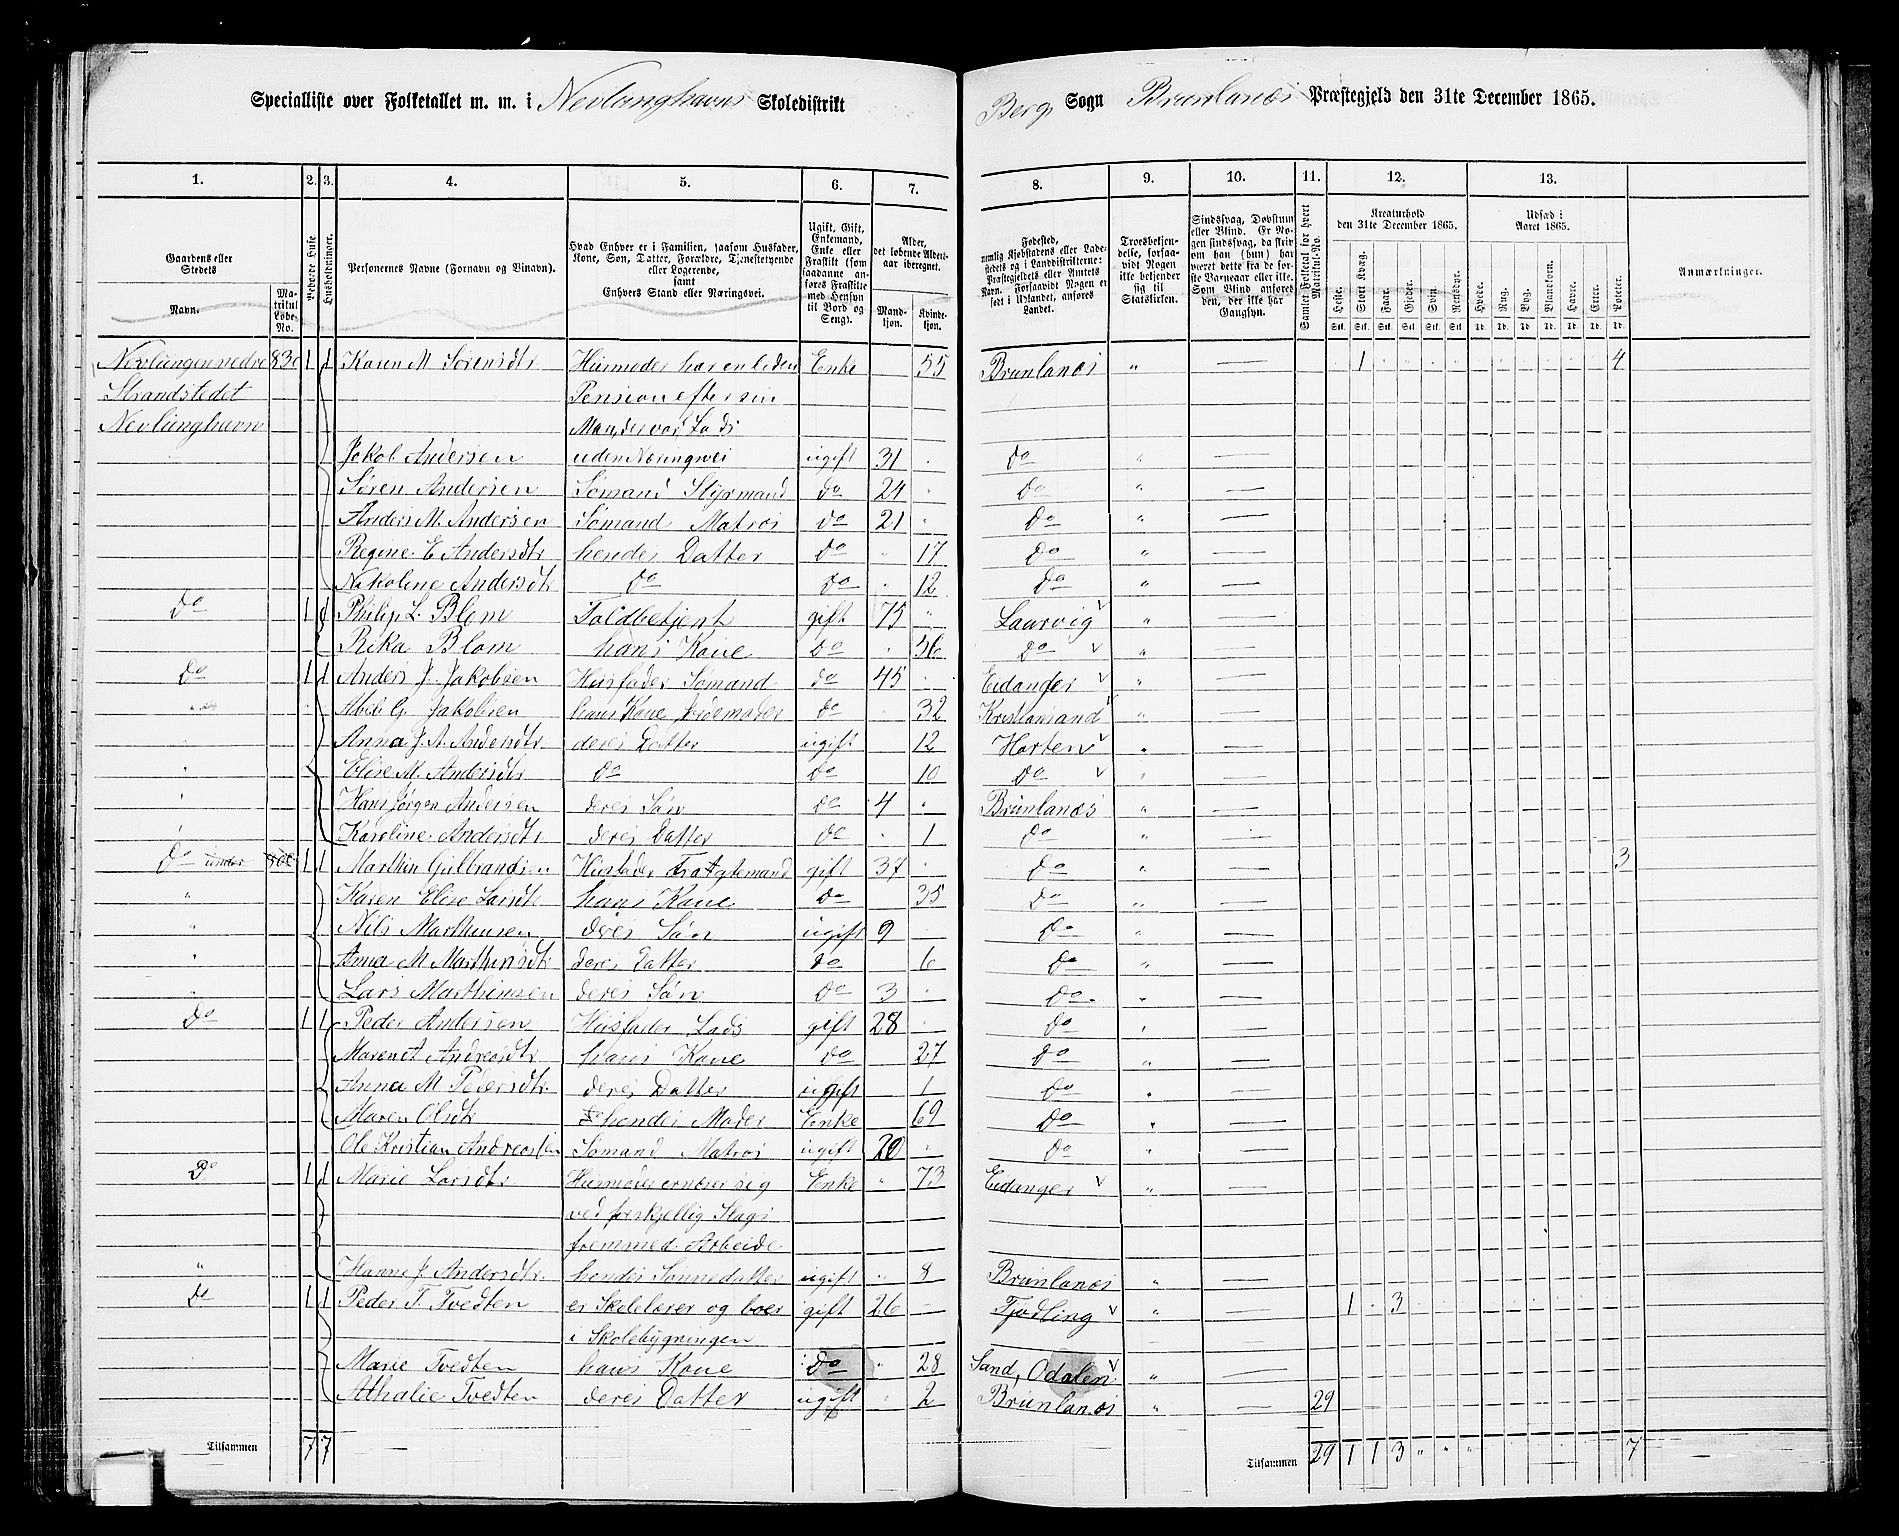 Specialliste over Folketallet m. m. i Nevlunghavns Skoledistrikt
Berg Sogn Brunlanæs Præstegjeld den 31te December 1865.
1. 2. 3. 4. 5. 6. 7. 8. 9. 10. 11. 12. 13.
Gaardens eller Stedets
Navn.
Matrikul Løbe-No.
Beboede Huse
Husholdninger.
Personernes Navne (Fornavn og Binavn).
Hvad Enhver er i Familien, saasom Husfader, Kone, Søn, Datter, Forældre, Tjenestetyende eller Logerende, samt Enhvers Stand eller Næringsvei.
Ugift, Gift, Enkemand, Enke eller Fraskilt (som saadanne anføres Fraskilte med Hensyn til Bord og Seng).
Alder, det løbende Alders-aar iberegnet.
Mandkjøn. Kvindekjøn.
Fødested, nemlig Kjøbstadens eller Ladestedets eller i Landdistrikterne: Præstegjeldets eller Amtets Navn. Forsaavidt Nogen er født i Udlandet, anføres Landet.
Troesbekjendelse, forsaavidt Nogen ikke bekjender sig til Statskirken.
Sindssvag, Døvstum eller Blind. Er Nogen sindssvag, da skriv om han (hun) har været dette fra de første Barneaar eller ikke. Som Blind anføres den, der ikke har Gangsyn.
Samlet Folketal for hvert Matrikul-No.
Kreaturhold den 31te December 1865.
Heste. Stort Kvæg. Faar. Gjeder. Svin. Rensdyr.
Udsæd i Aaret 1865.
Hvede. Rug. Byg. Blandkorn. Havre. Erter. Poteter.
Anmærkninger.
Nevlungen nedre 83c 1 1 Karen M. Sørensdtr Husmoder har en liden Enke 55 Brunlanæs " — 1 4
Strandstedet Pension efter sin
Nevlunghavn Mand, der var Lods
Jakob Andersen uden Næringsvei ugift 31 Do " —
Søren Andersen Sømand Styrmand Do 24 Do " —
Anders M. Andersen Sømand Matros Do 21 Do " —
Regine E Andersdtr hendes Datter Do " 17 Do " —
Nikoline Andersdtr Do Do " 12 Do " —
Do 1 1 Philip L. Blom Toldbetjent gift 75 " Laurvig " —
Rika Blom hans Kone Do " 36 Do " —
Do 1 1 Anders J. Jakobsen Husfader Sømand Do 45 Eidanger " —
G. Jakobsen hans Kone Jordemoder Do " 32 Kristiansand " —
Anna J. A. Andersdtr deres Datter ugift 12 Horten " —
Elise M. Andersdtr Do Do 10 Do " —
Hans Jørgen Andersen deres Søn Do 4 " Brunlanæs " —
Karoline Andersdtr deres Datter Do " 1 Do " —
Do under 1 1 Marthin Gulbrandsen Husfader Fragtemand gift 37 Do " — 3
Karen Elise Larsdtr hans Kone Do 35 Do " —
Nils Marthinsen deres Søn ugift 9 Do " —
Anna M Marthinsdtr deres Datter Do 6 Do " —
Lars Marthinsen deres Søn Do 3 Do " —
Do 1 1 Peder Andersen Husfader Lods gift 28 Do " —
Andreasdtr hans Kone Do 27 Do " —
Anna M. Pedersdtr deres Datter ugift 1 Do " —
Maren Olsdtr hendes Moder Enke 69 Do " —
Ole Kristian Andreassen Sømand Matros ugift 20 " Do " —
Do 1 1 Marie Larsdtr Husmoder ernærer sig Enke " 73 Eidanger " —
ved forskjellig Slags
fremmed Arbeide
Hanne J. Andersdtr. hendes Sønnedatter ugift " 8 Brunlanæs " —
Do 1 1 Peder T. Tvedten er Skolelærer og boer gift 26 Tjødling " — 1 3
i Skolebygningen
Marie Tvedten hans Kone Do " 28 Sand, Odalen " —
Athalie Tvedten deres Datter ugift " 2 Brunlanæs " — 29
Tilsammen 7 7 —
Tilsammen 29 1 1 3 " " " 7 —